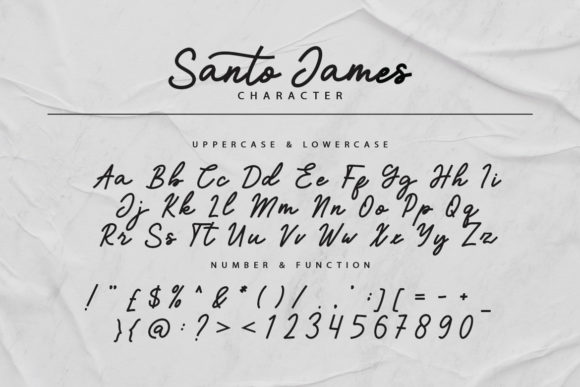 Santo James
CHARACTER
UPPERCASE & LOWERCASE
Aa Bb Cc Dd Ee Ff Gg Hh Ii
Jj Kk Ll Mm Nn Oo Pp Qq
Rr Ss Tt Uu Vv Ww Xx Yy Zz
NUMBER & FUNCTION
! " £ $ % ^ & * ( ) / . , ' : ] [ = - + _
} { @ : ? > < 1 2 3 4 5 6 7 8 9 0